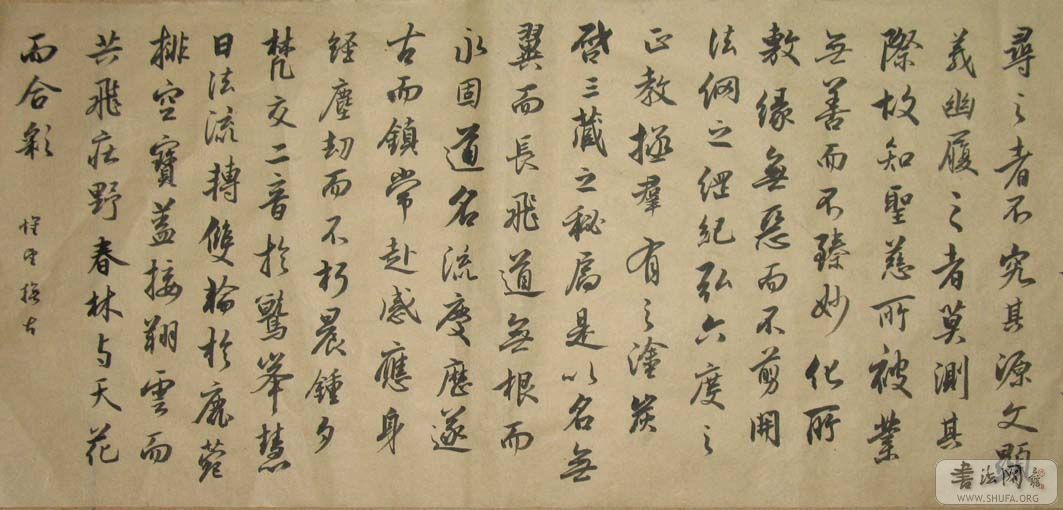 尋之者不究其源文顯
義幽履之者莫測其
際故知聖慈所被業
無善而不臻妙化所
敷緣無惡而不剪開
法網之綱紀弘六度之
正教拯羣有之塗炭
啓三藏之秘扃是以名無
翼而長飛道無根而
永固道名流慶歷遂
古而鎮常赴感應身
經塵劫而不朽晨鍾夕
梵交二音於鷲峯慧
日法流轉雙輪於鹿菀
排空寶蓋接翔雲而
共飛莊野春林与天花
而合彩
書法网
WWW.SHUFA.ORG